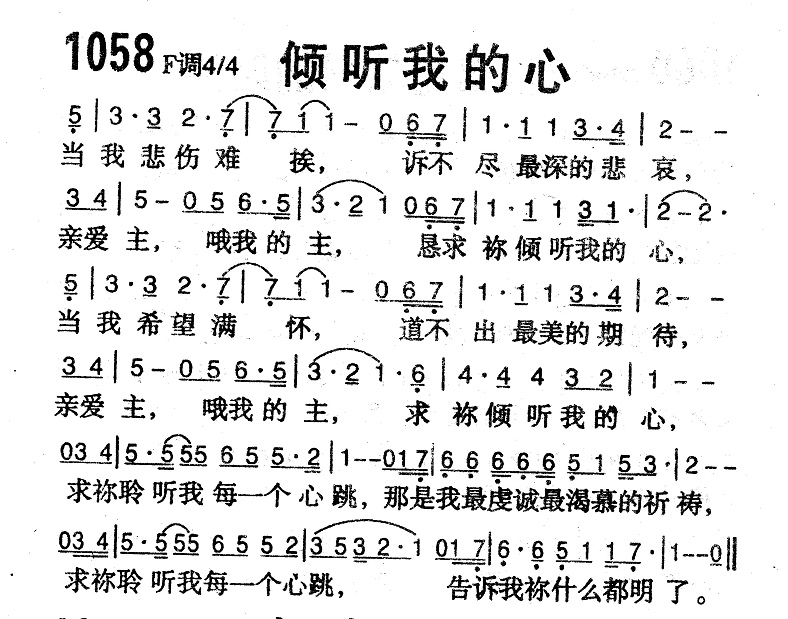 1058 F调4/4 倾听我的心
5 | 3·3 2·7 | 7 1 1 - 0 6 7 | 1·1 1 3·4 | 2 - -
当我悲伤难 挨, 诉不 尽 最深的悲 哀,
3 4 | 5 - 0 5 6·5 | 3·2 1 0 6 7 | 1·1 1 3 1· | 2 - 2·
亲爱 主, 哦我的 主, 恳求 祢倾听我的 心,
5 | 3·3 2·7 | 7 1 1 - 0 6 7 | 1·1 1 3·4 | 2 - -
当我希望满 怀, 道不 出 最美的期 待,
3 4 | 5 - 0 5 6·5 | 3·2 1·6 | 4·4 4 3 2 | 1 - -
亲爱 主, 哦我的 主, 求 祢倾 听我的 心,
03 4 | 5·555 6 5 5·2 | 1--01 7 | 6 6 6 6 6 5 1 5 3· | 2 - -
求祢聆 听我 每一个 心 跳, 那是我最虔诚最渴慕的祈 祷,
03 4 | 5·555 6 5 5 2 | 3 5 3 2·1 01 7 | 6·6 5 1 1 7· | 1--0 ||
求祢聆 听我每一个心跳, 告诉我祢什么都明 了。